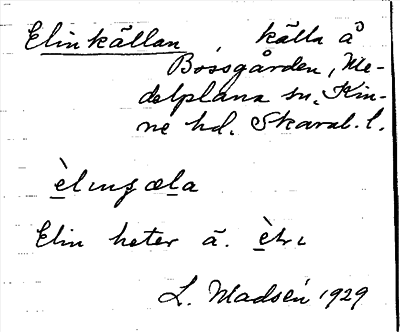 Elinkällan, källa å
Bossgården, Me-
delplana sn. Kin-
ne hd. Skarab. l.
èlinʃæla
Elin heter ä. èlı
L. Madsén 1929